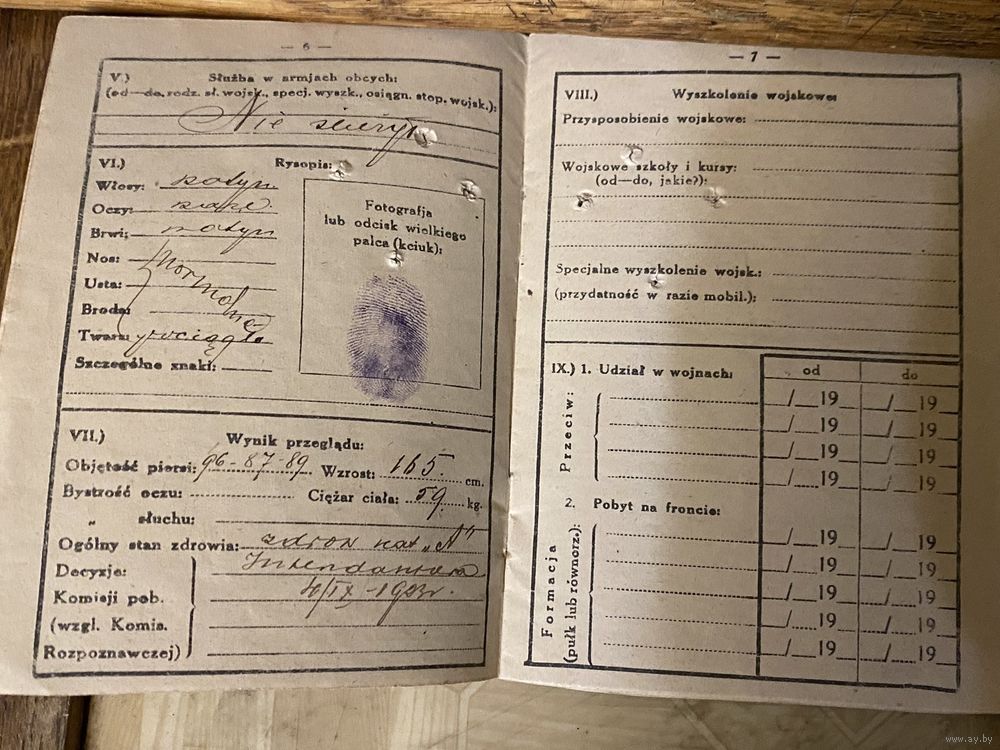 — 6 —
V.) Służba w armjach obcych:
(od—do, rodz. sł. wojsk., specj. wyszk., osiągn. stop. wojsk.):
Nie służył
VI.) Rysopis:
Włosy:
Oczy:
Brwi:
Nos:
Usta: normalne
Broda:
Twarz: pociągła
Szczególne znaki:
Fotografja
lub odcisk wielkiego
palca (kciuk):
VII.) Wynik przeglądu:
Objętość piersi: 96-87-89. Wzrost: 165. cm.
Bystrość oczu: Ciężar ciała: 59 kg.
„ słuchu:
Ogólny stan zdrowia: zdrow kat „A"
Decyzje: Intendantura
Komisji pob. 4/IX-1923r.
(wzgl. Komis.
Rozpoznawczej)
— 7 —
VIII.) Wyszkolenie wojskowe:
Przysposobienie wojskowe:
Wojskowe szkoły i kursy:
(od—do, jakie?):
Specjalne wyszkolenie wojsk.:
(przydatność w razie mobil.):
IX.) 1. Udział w wojnach: od do
Przeciw:
/ 19 / 19
/ 19 / 19
/ 19 / 19
/ 19 / 19
2. Pobyt na froncie:
Formacja
(pułk lub równorz.):
/ 19 / 19
/ 19 / 19
/ 19 / 19
/ 19 / 19
/ 19 / 19
www.ay.by